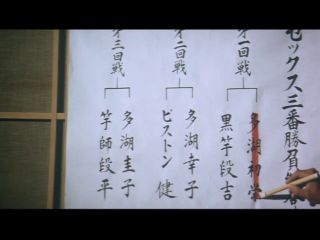 セックス三番勝負
第一回戦
多湖初栄
黒竿段吉
第二回戦
多湖幸子
ピストン健
第三回戦
多湖圭子
竿師段平